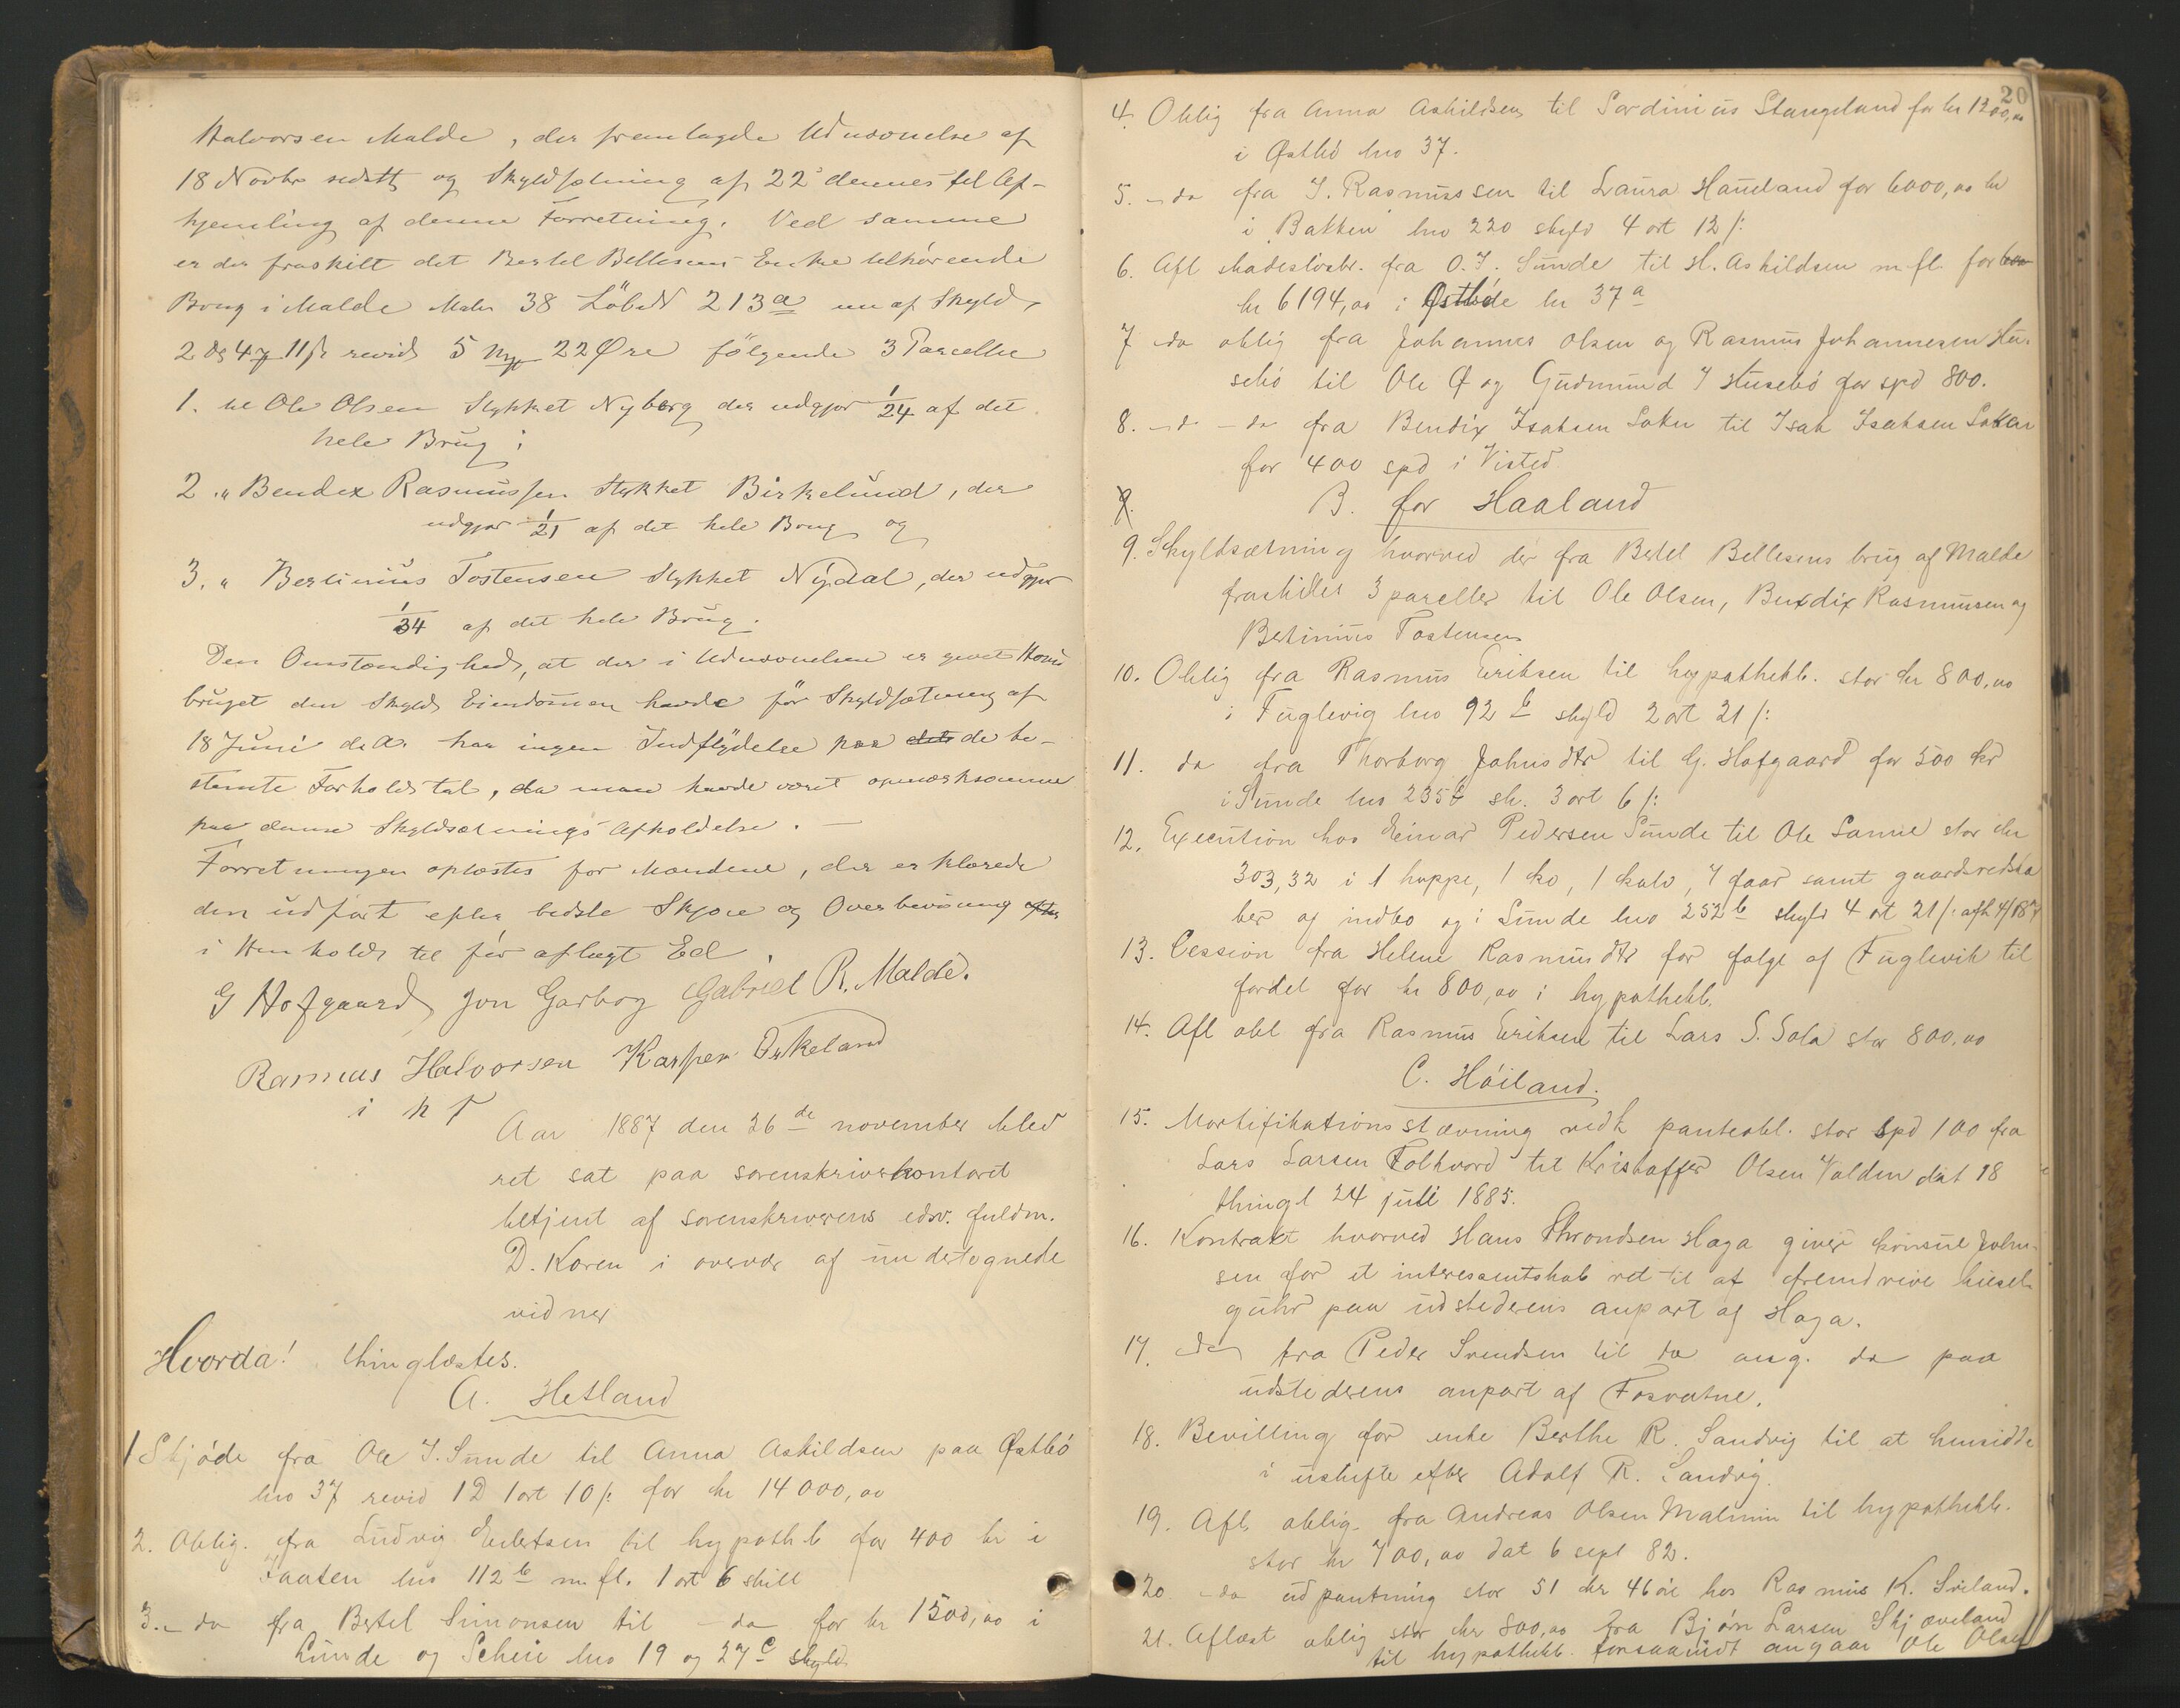 Halvorsen Malde, der fremlagde Udnævnelse af
18 Novbr sidstl og Skyldsætning af 22' dennes til Af-
hjemling af denne Forretning. Ved samme
er der fraskilt det Bertel Bellesens Enke tilhørende
Brug i Malde Matr 38 LöbeN 213a af Skyld
2 11 revid 5 22 Øre følgende 3 Parceller
1. til Ole Olsen Stykket Nyborg der udgjør 1/24 af det
hele Brug;
2 . " Bendix Rasmussen Stykket Birkelund, der
udgjør 1/21 af det hele Brug og
3. " Bertinius Tostensen Stykket Nydal, der udgjør
1/34 af det hele Brug.
Den Omstændighed, at der i Udnævnelsen er givet Hoved
bruget den Skyld, Eiendommen havde før Skyldsætning af
18 Juni d.A. har ingen Indflydelse paa de be-
stemte Forholdstal, da man havde været opmærksomme
paa denne Skyldsætnings Afholdelse. —
Forretningen oplæstes for Mændene, der erklærede
den udført efter bedste Skjøn og Overbevisning
i Henhold til før aflagt Ed
G Hofgaard Jon Garborg Gabriel R. Malde.
Rasmus Halvorsen Kasper Birkeland
i n F
Aar 1887 den 26de november blev
ret sat paa sorenskriverkontoret
betjent af sorenskriverens edsv. fuldm.
D. Koren i overvær af undertegnede
vidner
Hvorda! thinglæstes.
A. Hetland
1 Skjøde fra Ole J. Sunde til Anna Askildsen paa Østbø
lno 37 revid 1 D 1 ort 10 /: for kr 14000,00
2. Oblig. fra Ludvig til hypothb for 400 kr i
Jaaten lno 112b m.fl. 1 ort 6 skill
3. - do fra Bertel Simonsen til - do for kr 1500,00 i
Lunde og Scheie lno 19 og 27c skyld
20
4. Oblig fra Anna Askildsen til Sardinius Stangeland for kr 1200,00
i Østbø lno 37.
5. - do fra J. Rasmussen til Laura Hauland for 6000,00 kr
i Bakken lno 220 skyld 4 ort 12 /:
6. Afl skadesløsbr. fra O. J. Sunde til H. Askildsen m.fl. for
kr 6194,00 i Østbø lno 37a
7 do oblig fra Johannes Olsen og Rasmus Johannesen Hu-
sebø til Ole Ø og Gudmund J Husebø for spd 800.
8. - do - do fra Bendix Isaksen Soken til Isak Isaksen Soken
for 400 spd i Visted
9.
B. for Haaland
9. Skyldsætning hvorved der fra Bertel Bellesens brug af Malde
fraskilles 3 parceller til Ole Olsen, Bendix Rasmussen og
Bertinius Tostensen
10. Oblig fra Rasmus Eriksen til hypothekb. stor kr 800,00
i Fuglevig lno 92b skyld 2 ort 21 /:
11. do fra Thorborg Johnsdtr til G. Hofgaard for 500 kr
i Sunde lno 235b sk. 3 ort 6 /:
12. Execution hos Einar Pedersen Sunde til Ole Sømme stor kr
303,32 i 1 hoppe, 1 ko, 1 kalv, 7 faar samt gaardsredska
ber og indbo og i Sunde lno 252b skyld 4 ort 21 /: afh 4/1887
13. Cession fra Helene Rasmusdtr for følge af Fuglevik til
fordel for kr 800,00 i hypothekb.
14. Afl obl fra Rasmus Eriksen til Lars S. Sola stor 800,00
C. Høiland.
15. Mortifikationsstævning vedk panteobl. stor spd 100 fra
Lars Larsen Folkvord til Kristoffer Olsen Valden dat 18
thingl 24 juli 1885.
16. Kontrakt hvorved Hans Throndsen Haga giver konsul John-
sen for et interessentskab ret til at fremdrive kiesel-
guhr paa udstederens anpart af Haga.
17. do fra Peder Svendsen til do ang. do paa
udstederens anpart af Fosvatne.
18. Bevilling for enke Berthe R. Sandvig til at hensidde
i uskifte efter Adolf R. Sandvig.
19. Afl. oblig. fra Andreas Olsen Malmin til hypothekb.
stor kr 700,00 dat 6 sept 82.
20 - do udpantning stor 51 kr 46 øre hos Rasmus K. Sviland.
21. Aflæst oblig stor kr 800,00 fra Bjørn Larsen Skjæveland
til hypothekb. forsaavidt angaar Ole Olsen